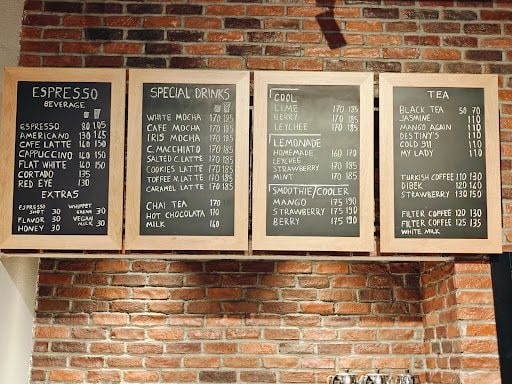 ESPRESSO
BEVERAGE
ESPRESSO 80 105
AMERICANO 130 145
CAFE LATTE 140 150
CAPPUCCINO 140 150
FLAT WHITE 140 150
CORTADO 135
RED EYE 130
EXTRAS
ESPRESSO SHOT 30
FLAVOR 30
HONEY 30
WHIPPET CREAM 30
VEGAN MILK 30
SPECIAL DRINKS
WHITE MOCHA 170 185
CAFE MOCHA 170 185
IRIS MOCHA 170 185
C. MACCHIATO 170 185
SALTED C. LATTE 170 185
COOKIES LATTE 170 185
TOFFEE N. LATTE 170 185
CARAMEL LATTE 170 185
CHAI TEA 170
HOT CHOCOLATA 170
MILK 140
COOL
LIME 170 185
BERRY 170 185
LEYCHEE 170 185
LEMONADE
HOMEMADE 160 170
LEYCHEE
STRAWBERRY 170 185
MINT 170 185
SMOOTHIE/COOLER
MANGO 175 190
STRAWBERRY 175 190
BERRY 175 190
TEA
BLACK TEA 50 70
JASMINE 110
MANGO AGAIN 110
DESTINY'S 110
COLD 911 110
MY LADY 110
TURKISH COFFEE 110 115
DIBEK 120 140
STRAWBERRY 130 150
FILTER COFFEE 120 130
FILTER COFFEE 125 135
WHITE MILK